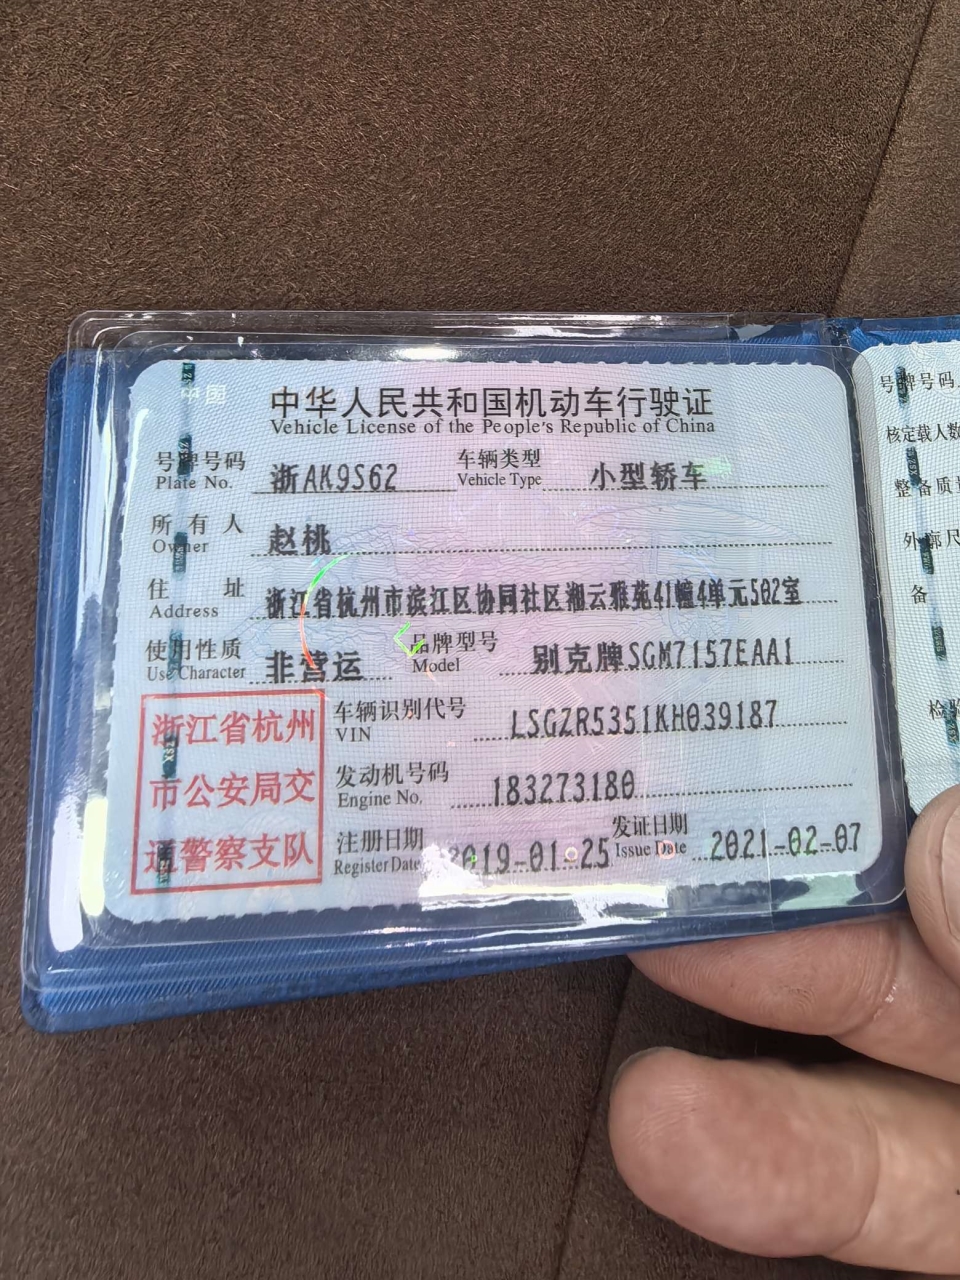 中华人民共和国机动车行驶证
Vehicle License of the People's Republic of China
号牌号码 浙AK9S62 车辆类型 小型轿车
Plate No. Vehicle Type
所有人 赵桃
Owner
住址 浙江省杭州市滨江区协同社区湘云雅苑41幢4单元502室
Address
使用性质 非营运 品牌型号 别克牌SGM7157EAA1
Use Character Model
浙江省杭州
市公安局交
通警察支队
车辆识别代号 LSGZR5351KH039187
VIN
发动机号码 183273180
Engine No.
注册日期 2019-01-25 发证日期 2021-02-07
Register Date Issue Date
号牌号码
核定载人数
整备质量
外廓尺
备
检验